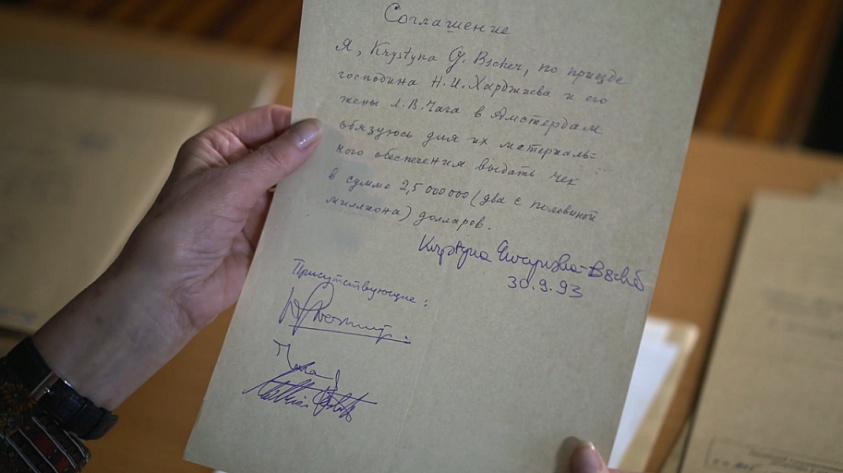 Соглашение
Я, Krystyna G. Bscher, по приезде
господина Н.И. Харджиева и его
жены Л.В. Чага в Амстердам
обязуюсь для их материаль=
ного обеспечения выдать чек
в сумме 2,5 000000 (два с половиной
миллиона) долларов.
Krystyna
30.9.93
Присутствующие: